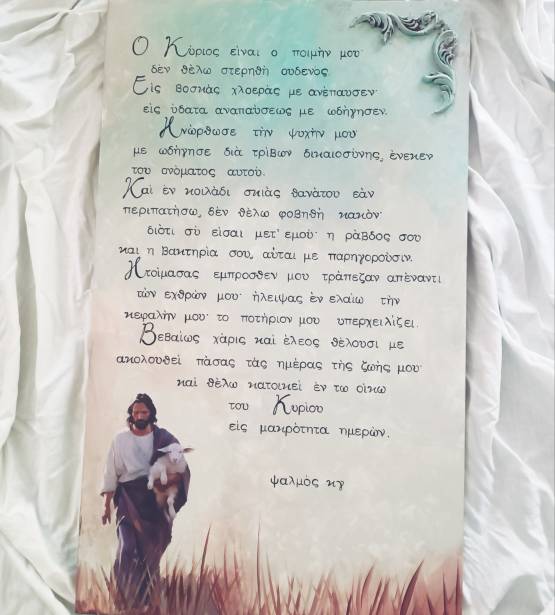 Ο Κύριος είναι ο ποιμήν μου·
δέν θέλω στερηθή ουδενός.
Είς βοσκάς χλοεράς με ανέπαυσεν·
είς ύδατα αναπαύσεως με ωδήγησεν.
Ηνώρθωσε τήν ψυχήν μου
με ωδήγησε διά τρίβων δικαιοσύνης, ένεκεν
του ονόματος αυτού.
Καί έν κοιλάδι σκιάς θανάτου εάν
περιπατήσω, δέν θέλω φοβηθή κακόν·
διότι σύ είσαι μετ' εμού· η ράβδος σου
και η βακτηρία σου, αύται με παρηγορούσιν.
Ητοίμασας εμπροσθεν μου τράπεζαν απέναντι
τών εχθρών μου· ήλειψας έν ελαίω τήν
κεφαλήν μου· το ποτήριον μου υπερχειλίζει.
Βεβαίως χάρις καί έλεος θέλουσι με
ακολουθεί πάσας τάς ημέρας τής ζωής μου·
καί θέλω κατοικεί έν τω οίκω
του Κυρίου
είς μακρότητα ημερών.
ψαλμός κγ